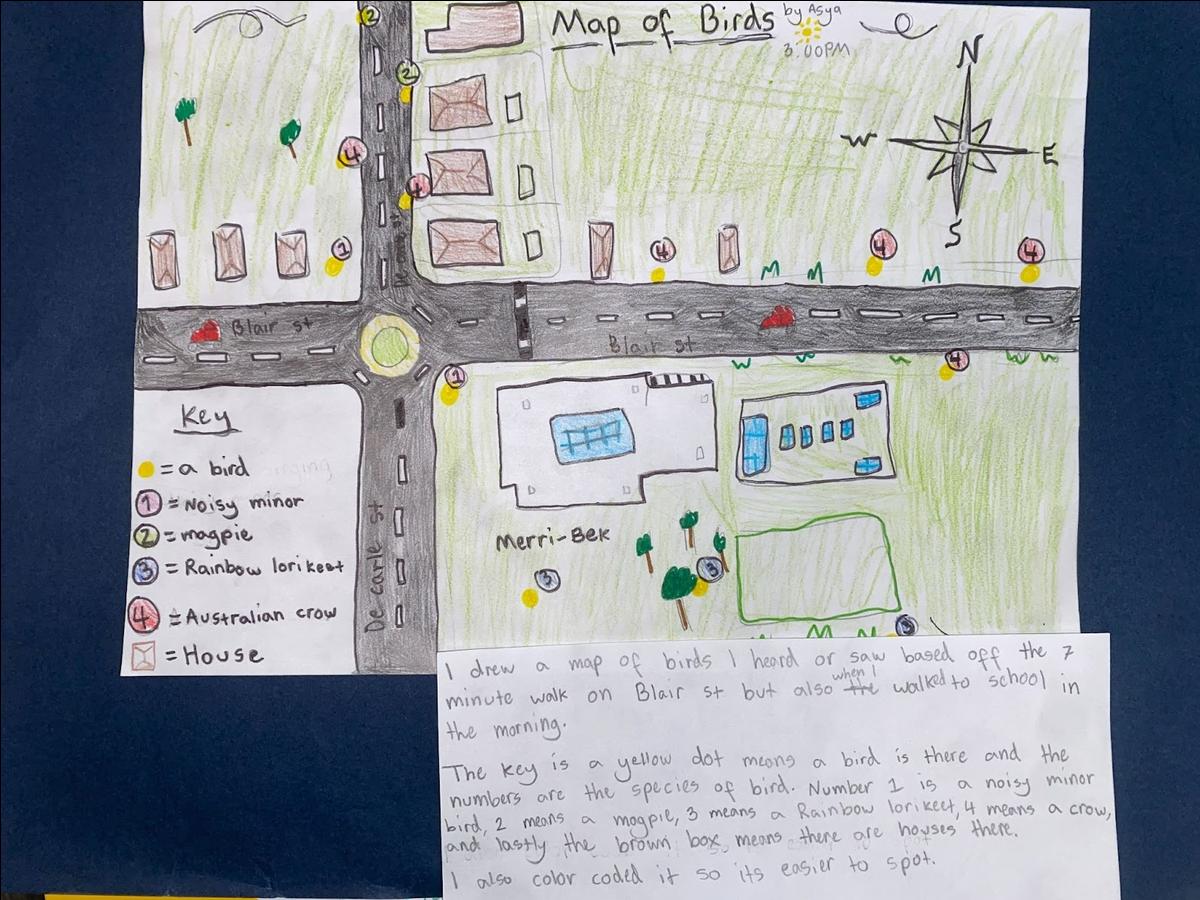 Map of Birds
by Asya
3:00PM
N
W
E
S
2
2
4
4
1
4
4
4
De carle st
Blair st
Blair st
1
4
Key
= a bird
1 = Noisy minor
2 = magpie
3 = Rainbow lorikeet
4 = Australian crow
= House
De carle st
Merri-Bek
3
3
3
I drew a map of birds I heard or saw based off the 7
minute walk on Blair st but also the when I walked to school in
the morning.
The key is a yellow dot means a bird is there and the
numbers are the species of bird. Number 1 is a noisy minor
bird, 2 means a magpie, 3 means a Rainbow lorikeet, 4 means a crow,
and lastly the brown box means there are houses there.
I also color coded it so its easier to spot.